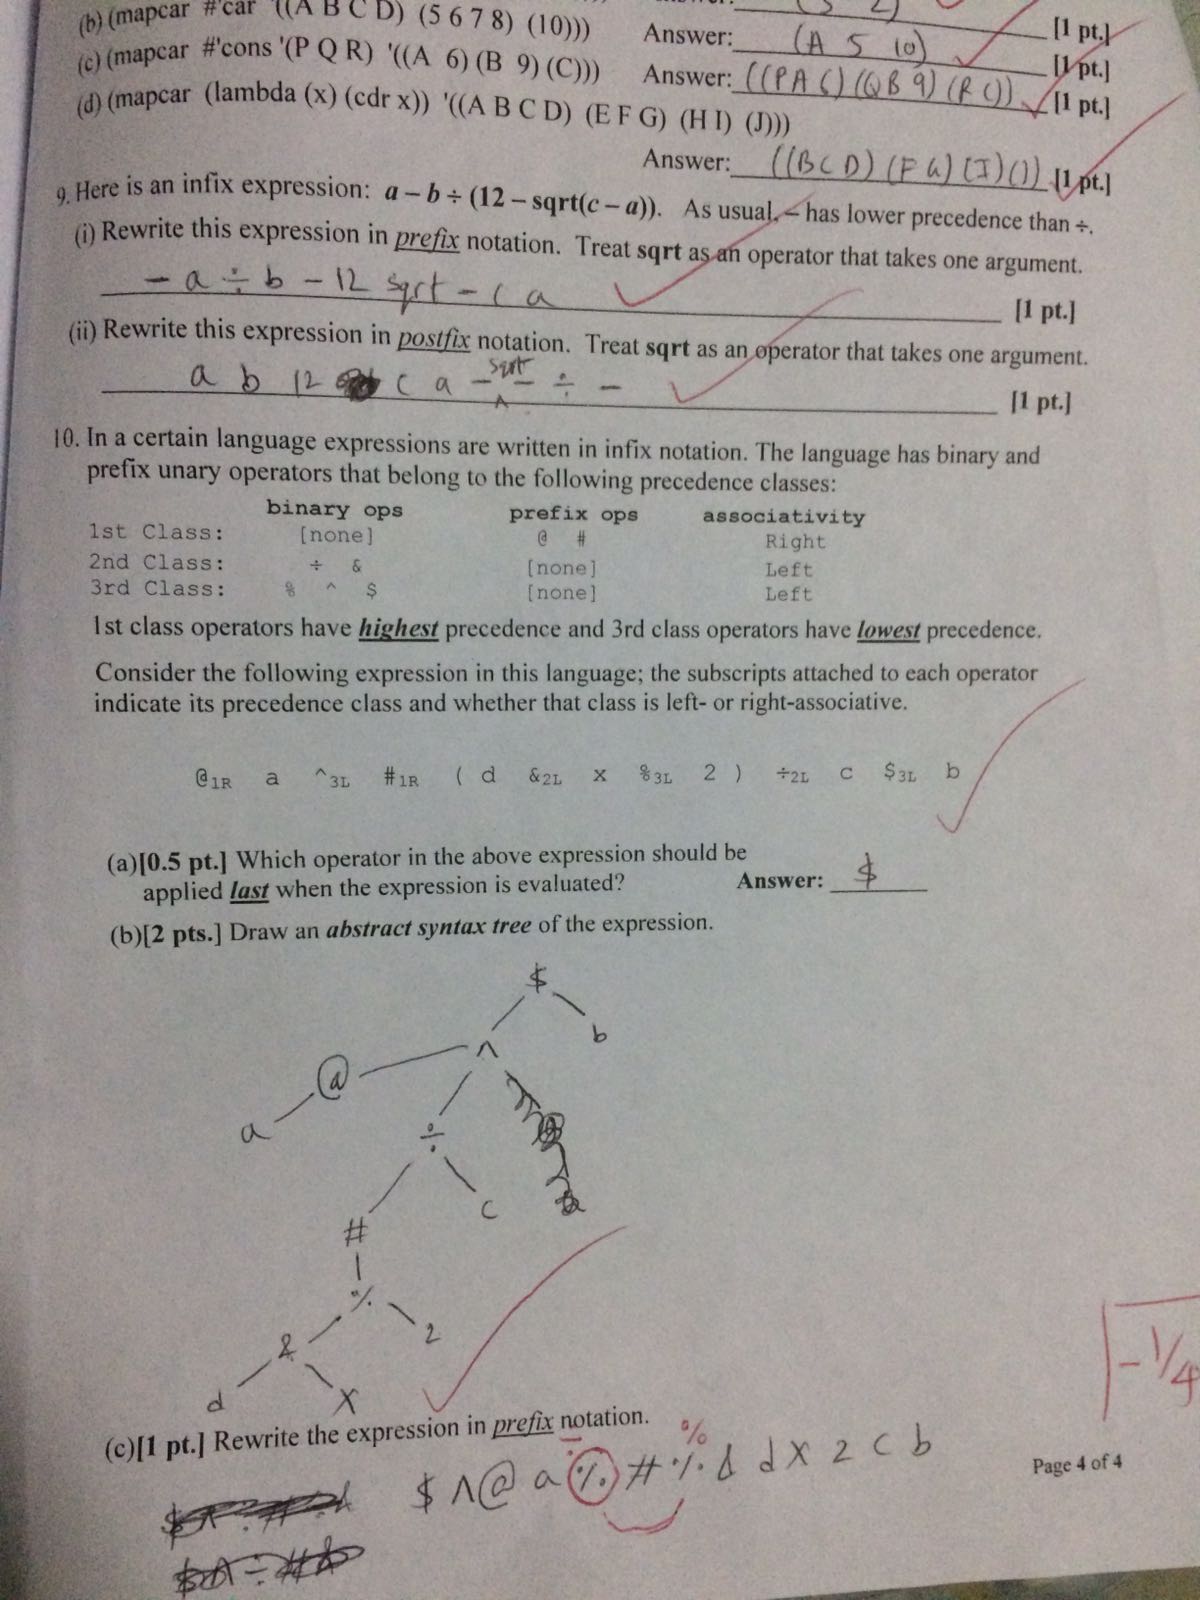 (b) (mapcar #'car '((A B C D) (5 6 7 8) (10))) Answer: (A 5 10) [1 pt.]
(c) (mapcar #'cons '(P Q R) '((A 6) (B 9) (C))) Answer: ((P A 6) (Q B 9) (R C)) [1 pt.]
(d) (mapcar (lambda (x) (cdr x)) '((A B C D) (E F G) (H I) (J))) [1 pt.]
Answer: ((B C D) (F G) (I) ()) [1 pt.]
9. Here is an infix expression: a – b ÷ (12 – sqrt(c – a)). As usual, – has lower precedence than ÷.
(i) Rewrite this expression in prefix notation. Treat sqrt as an operator that takes one argument.
– a ÷ b – 12 sqrt – c a
[1 pt.]
(ii) Rewrite this expression in postfix notation. Treat sqrt as an operator that takes one argument.
a b 12 c a – sqrt – ÷ –
[1 pt.]
10. In a certain language expressions are written in infix notation. The language has binary and
prefix unary operators that belong to the following precedence classes:
binary ops prefix ops associativity
1st Class: [none] @ # Right
2nd Class: ÷ & [none] Left
3rd Class: % ^ $ [none] Left
1st class operators have highest precedence and 3rd class operators have lowest precedence.
Consider the following expression in this language; the subscripts attached to each operator
indicate its precedence class and whether that class is left- or right-associative.
@1R a ^3L #1R ( d &2L x %3L 2 ) ÷2L c $3L b
(a)[0.5 pt.] Which operator in the above expression should be
applied last when the expression is evaluated? Answer: $
(b)[2 pts.] Draw an abstract syntax tree of the expression.
$
^ b
@
a ÷
c
#
%
& 2
d x
- 1/4
(c)[1 pt.] Rewrite the expression in prefix notation.
%
$ ^ @ a % # % & d x 2 c b
Page 4 of 4